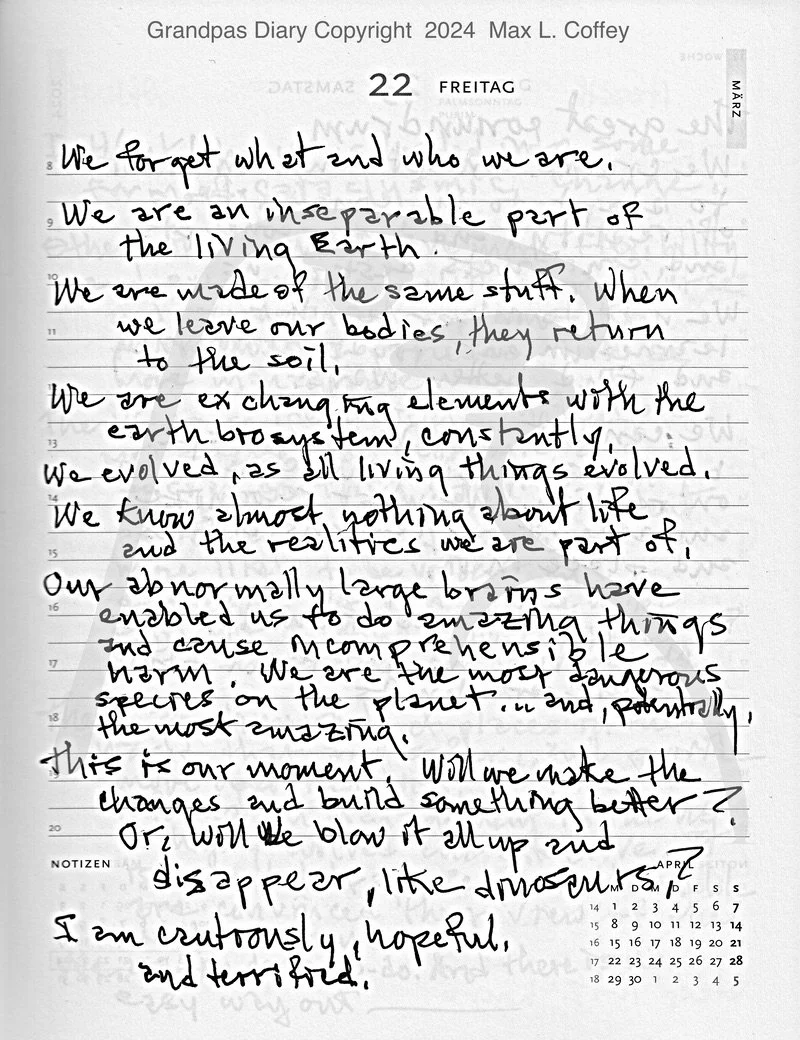 Grandpas Diary Copyright 2024 Max L. Coffey
22 FREITAG
MÄRZ
8 We forget what and who we are.
9 We are an inseparable part of
the living Earth.
10 We are made of the same stuff. When
11 we leave our bodies, they return
to the soil.
We are exchanging elements with the
13 earth biosystem, constantly.
We evolved, as all living things evolved.
14 We know almost nothing about life
15 and the realities we are part of.
Our abnormally large brains have
16 enabled us to do amazing things
and cause incomprehensible
17 harm. We are the most dangerous
species on the planet... and, potentially,
18 the most amazing.
This is our moment. Will we make the
19 changes and build something better?
20 Or, will we blow it all up and
NOTIZEN
disappear, like dinosaurs?
I am cautiously, hopeful.
and terrified.
APRIL
M D M D F S S
14 1 2 3 4 5 6 7
15 8 9 10 11 12 13 14
16 15 16 17 18 19 20 21
17 22 23 24 25 26 27 28
18 29 30 1 2 3 4 5